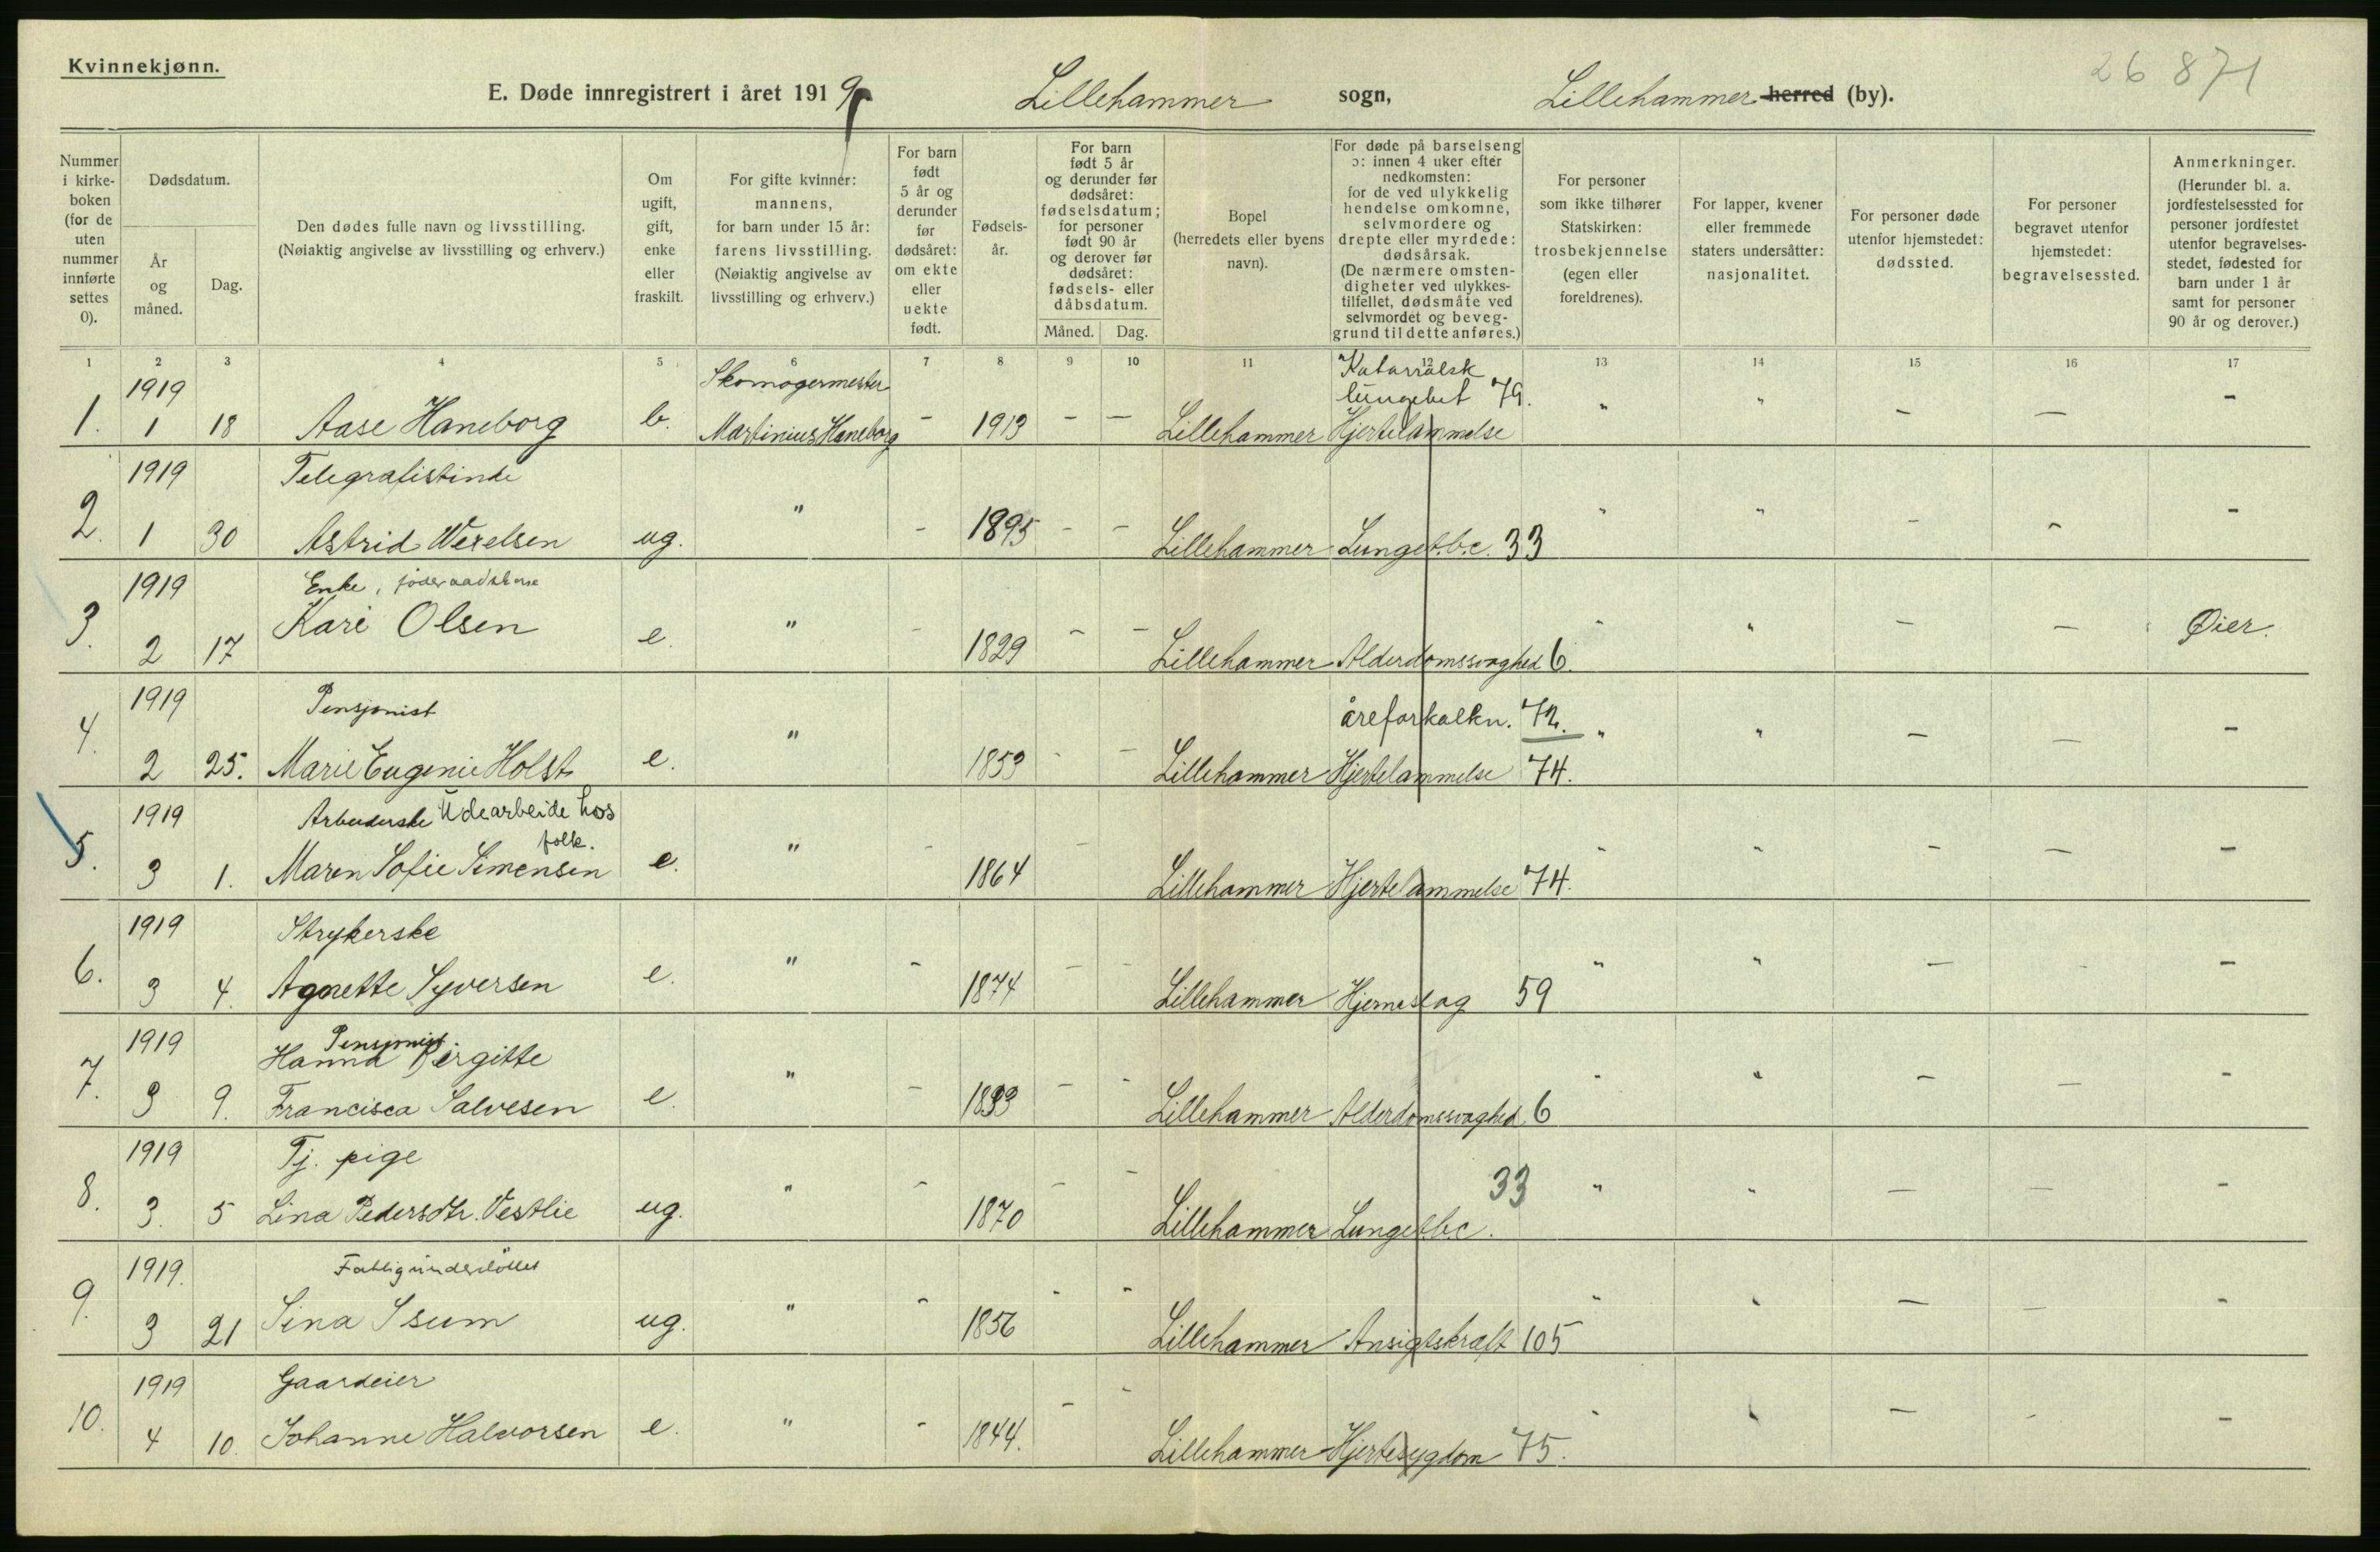 Kvinnekjønn.
26 871
E. Døde innregistrert i året 1919 Lillehammer sogn, Lillehammer herred (by).
Nummer i kirke-boken (for de uten nummer innførte settes 0).
Dødsdatum.
År og måned.
Dag.
Den dødes fulle navn og livsstilling.
(Nøiaktig angivelse av livsstilling og erhverv.)
Om ugift, gift, enke eller fraskilt.
For gifte kvinner: mannens, for barn under 15 år: farens livsstilling. (Nøiaktig angivelse av livsstilling og erhverv.)
For barn født 5 år og derunder før dødsåret: om ekte eller uekte født.
Fødsels-år.
For barn født 5 år og derunder før dødsåret: fødselsdatum; for personer født 90 år og derover før dødsåret: fødsels- eller dåbsdatum.
Måned. Dag.
Bopel (herredets eller byens navn).
For døde på barselseng ɔ: innen 4 uker efter nedkomsten: for de ved ulykkelig hendelse omkomne, selvmordere og drepte eller myrdede: dødsårsak. (De nærmere omsten-digheter ved ulykkes-tilfellet, dødsmåte ved selvmordet og beveg-grund til dette anføres.)
For personer som ikke tilhører Statskirken: trosbekjennelse (egen eller foreldrenes).
For lapper, kvener eller fremmede staters undersåtter: nasjonalitet.
For personer døde utenfor hjemstedet: dødssted.
For personer begravet utenfor hjemstedet: begravelsessted.
Anmerkninger. (Herunder bl. a. jordfestelsessted for personer jordfestet utenfor begravelses-stedet, fødested for barn under 1 år samt for personer 90 år og derover.)
1 2 3 4 5 6 7 8 9 10 11 12 13 14 15 16 17
1919 Skomagermester Katarralsk
lungebet 79.
1. 1 18 Aase Haneborg b. Martinius Haneborg - 1913 - - Lillehammer Hjertelammelse " " - - -
1919 Telegrafistinde
2. 1 30 Astrid Wexelsen ug. " - 1895 - - Lillehammer Lungetbc. 33 " " - - -
1919 Enke, føderaadskone
3. 2 17 Kari Olsen e. " - 1829 - - Lillehammer Alderdomssvaghed 6. " " - - Øier.
1919 Pensjonist åreforkalkn. 72.
4. 2 25. Marie Eugenie Holst e. " 1853 - - Lillehammer Hjertelammelse 74. " " - - -
1919 Arbeiderske Udearbeide hos
folk.
5. 3 1. Maren Sofie Simensen e. " - 1864 - Lillehammer Hjertelammelse 74. " " - - -
1919 Strykerske
6. 3 4. Agnette Syversen e. " - 1874 - - Lillehammer Hjerneslag 59 " " - - -
1919 Pensjonist
Hanna Birgitte
7. 3 9. Francisca Salvesen e. " - 1833 - - Lillehammer Alderdomssvaghed 6 " " - - -
1919 Tj. pige
8. 3. 5 Lina Pedersdtr. Vestlie ug. " - 1870 - - Lillehammer Lungetbc. 33 " " - - -
1919. Fattigunderstöttet
9. 3 21 Sina Isum ug. " - 1856 - - Lillehammer Ansigtskræft 105 " " - - -
1919 Gaardeier
10. 4 10. Johanne Halvorsen e. " - 1844. - - Lillehammer Hjertesygdom 75. " " - - -